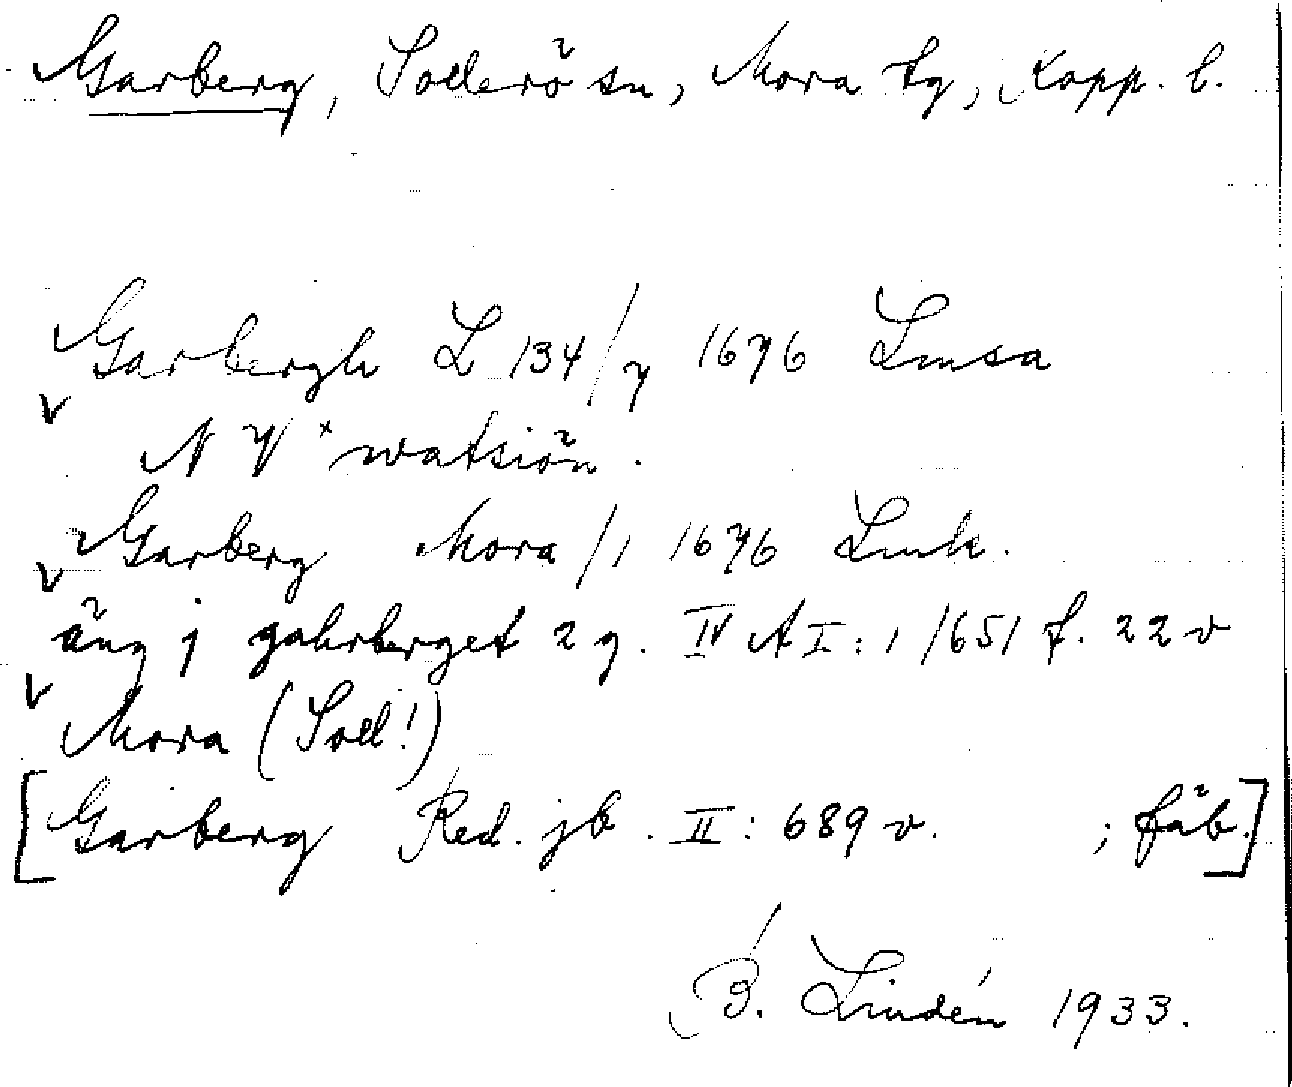 Garberg, Sollerö sn, Mora tg, Kopp. l.
Garbergh L 134/7 1676 Lmsa
N V x watsiön.
Garberg Mora/1 1676 Lmk.
äng j gahrberget 2 g. IV A I:1 /651 f. 22 v
Mora (Soll!)
[Garberg Red. jb. II: 689 v. ; fäb.]
B. Lindén 1933.